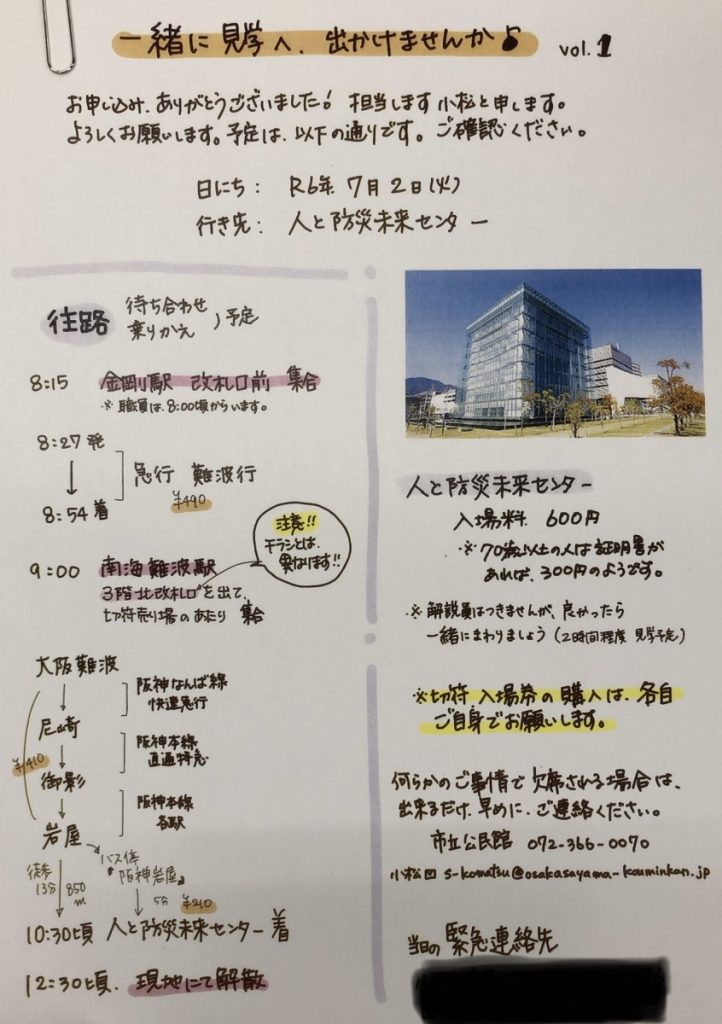 一緒に見学へ、出かけませんか♪ vol.1
お申し込み、ありがとうございました! 担当します小松と申します。
よろしくお願いします。予定は、以下の通りです。ご確認ください。
日にち: R6年 7月2日(火)
行き先: 人と防災未来センター
往路 待ち合わせ
乗りかえ )予定
8:15 金剛駅 改札口前 集合
※職員は、8:00頃からいます。
8:27発
↓ 急行 難波行
¥490
8:54着
注意!!
チラシとは、
異なります!!
9:00 南海難波駅
3階北改札口を出て、
切符売り場のあたり 集合
大阪難波
↓ 阪神なんば線
快速急行
尼崎
↓ 阪神本線
直通特急
¥410
御影
↓ 阪神本線
各駅
岩屋
バス停
『阪神岩屋』
徒歩
13分 850
m
5分 ¥210
10:30頃 人と防災未来センター着
12:30頃、現地にて解散
人と防災未来センター
入場料 600円
※70歳以上の人は証明書が
あれば、300円のようです。
※解説員はつきませんが、良かったら
一緒にまわりましょう(2時間程度 見学予定)
※切符 入場券の購入は、各自
ご自身でお願いします。
何らかのご事情で欠席される場合は、
出来るだけ、早めに、ご連絡ください。
市立公民館 072-366-0070
小松 s-komatsu@osakasayama-kouminkan.jp
当日の緊急連絡先